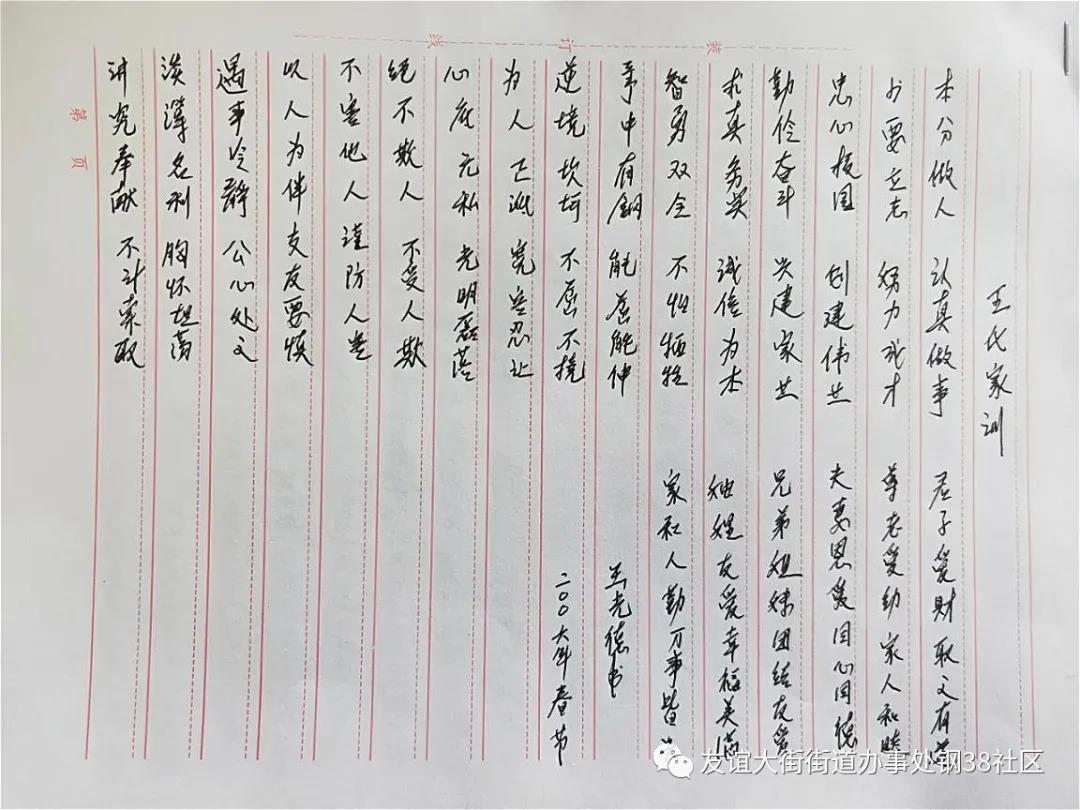 装 订 线
王氏家训
本分做人 认真做事
少要立志 努力成才
忠心报国 创建伟业
勤俭奋斗 兴建家业
求真务实 诚信为本
智勇双全 不怕牺牲
中有鋼 能屈能伸
逆境坎坷 不屈不挠
为人正派 宽容忍让
心底无私 光明磊落
绝不欺人 不受人欺
不害他人 谨防人害
以人为伴 交友要慎
遇事冷静 公心处之
淡薄名利 胸怀坦荡
讲究奉献 不计索取
君子爱财取之有道
尊老爱幼家人和睦
夫妻恩爱同心同德
兄弟姐妹团结友爱
妯娌友爱幸福美满
家和人勤万事皆
王光德书
二00六年春节
第 页
友谊大街街道办事处钢38社区